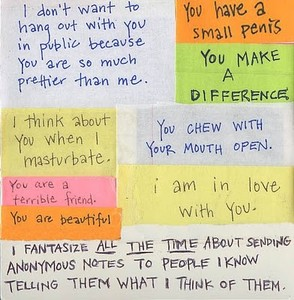 I don't want to
hang out with you
in public because
you are so much
prettier than me.
You have a
small penis
YOU MAKE
A
DIFFERENCE
I think about
you when I
masturbate.
You CHEW WITH
YOUR MOUTH OPEN.
You are a
terrible friend.
i am in love
with you.
You are beautiful
I FANTASIZE ALL THE TIME ABOUT SENDING
ANONYMOUS NOTES TO PEOPLE I KNOW
TELLING THEM WHAT I THINK OF THEM.